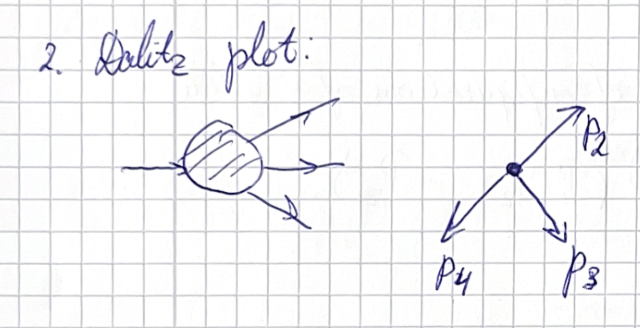 2. Dalitz plot:
P2
P4 P3